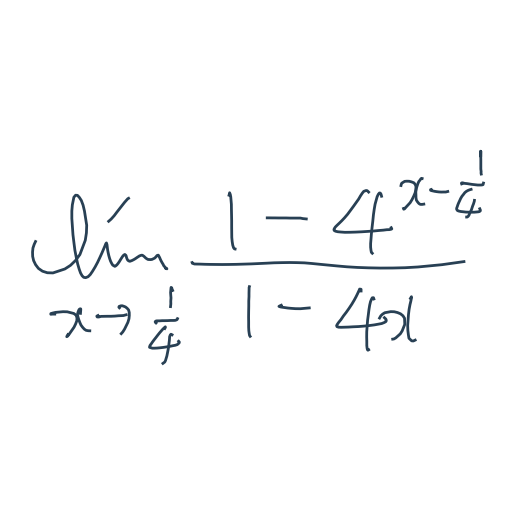 \lím_{x \to \frac{1}{4}} \frac{1 - 4^{x - \frac{1}{4}}}{1 - 4x}